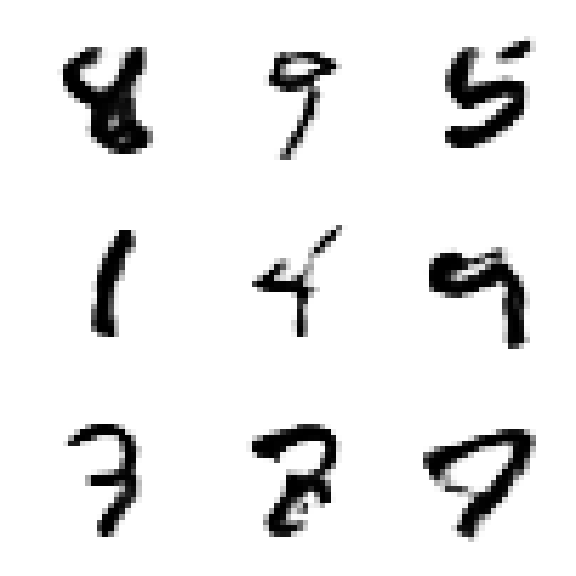 8 9 5
1 4 9
7 8 9